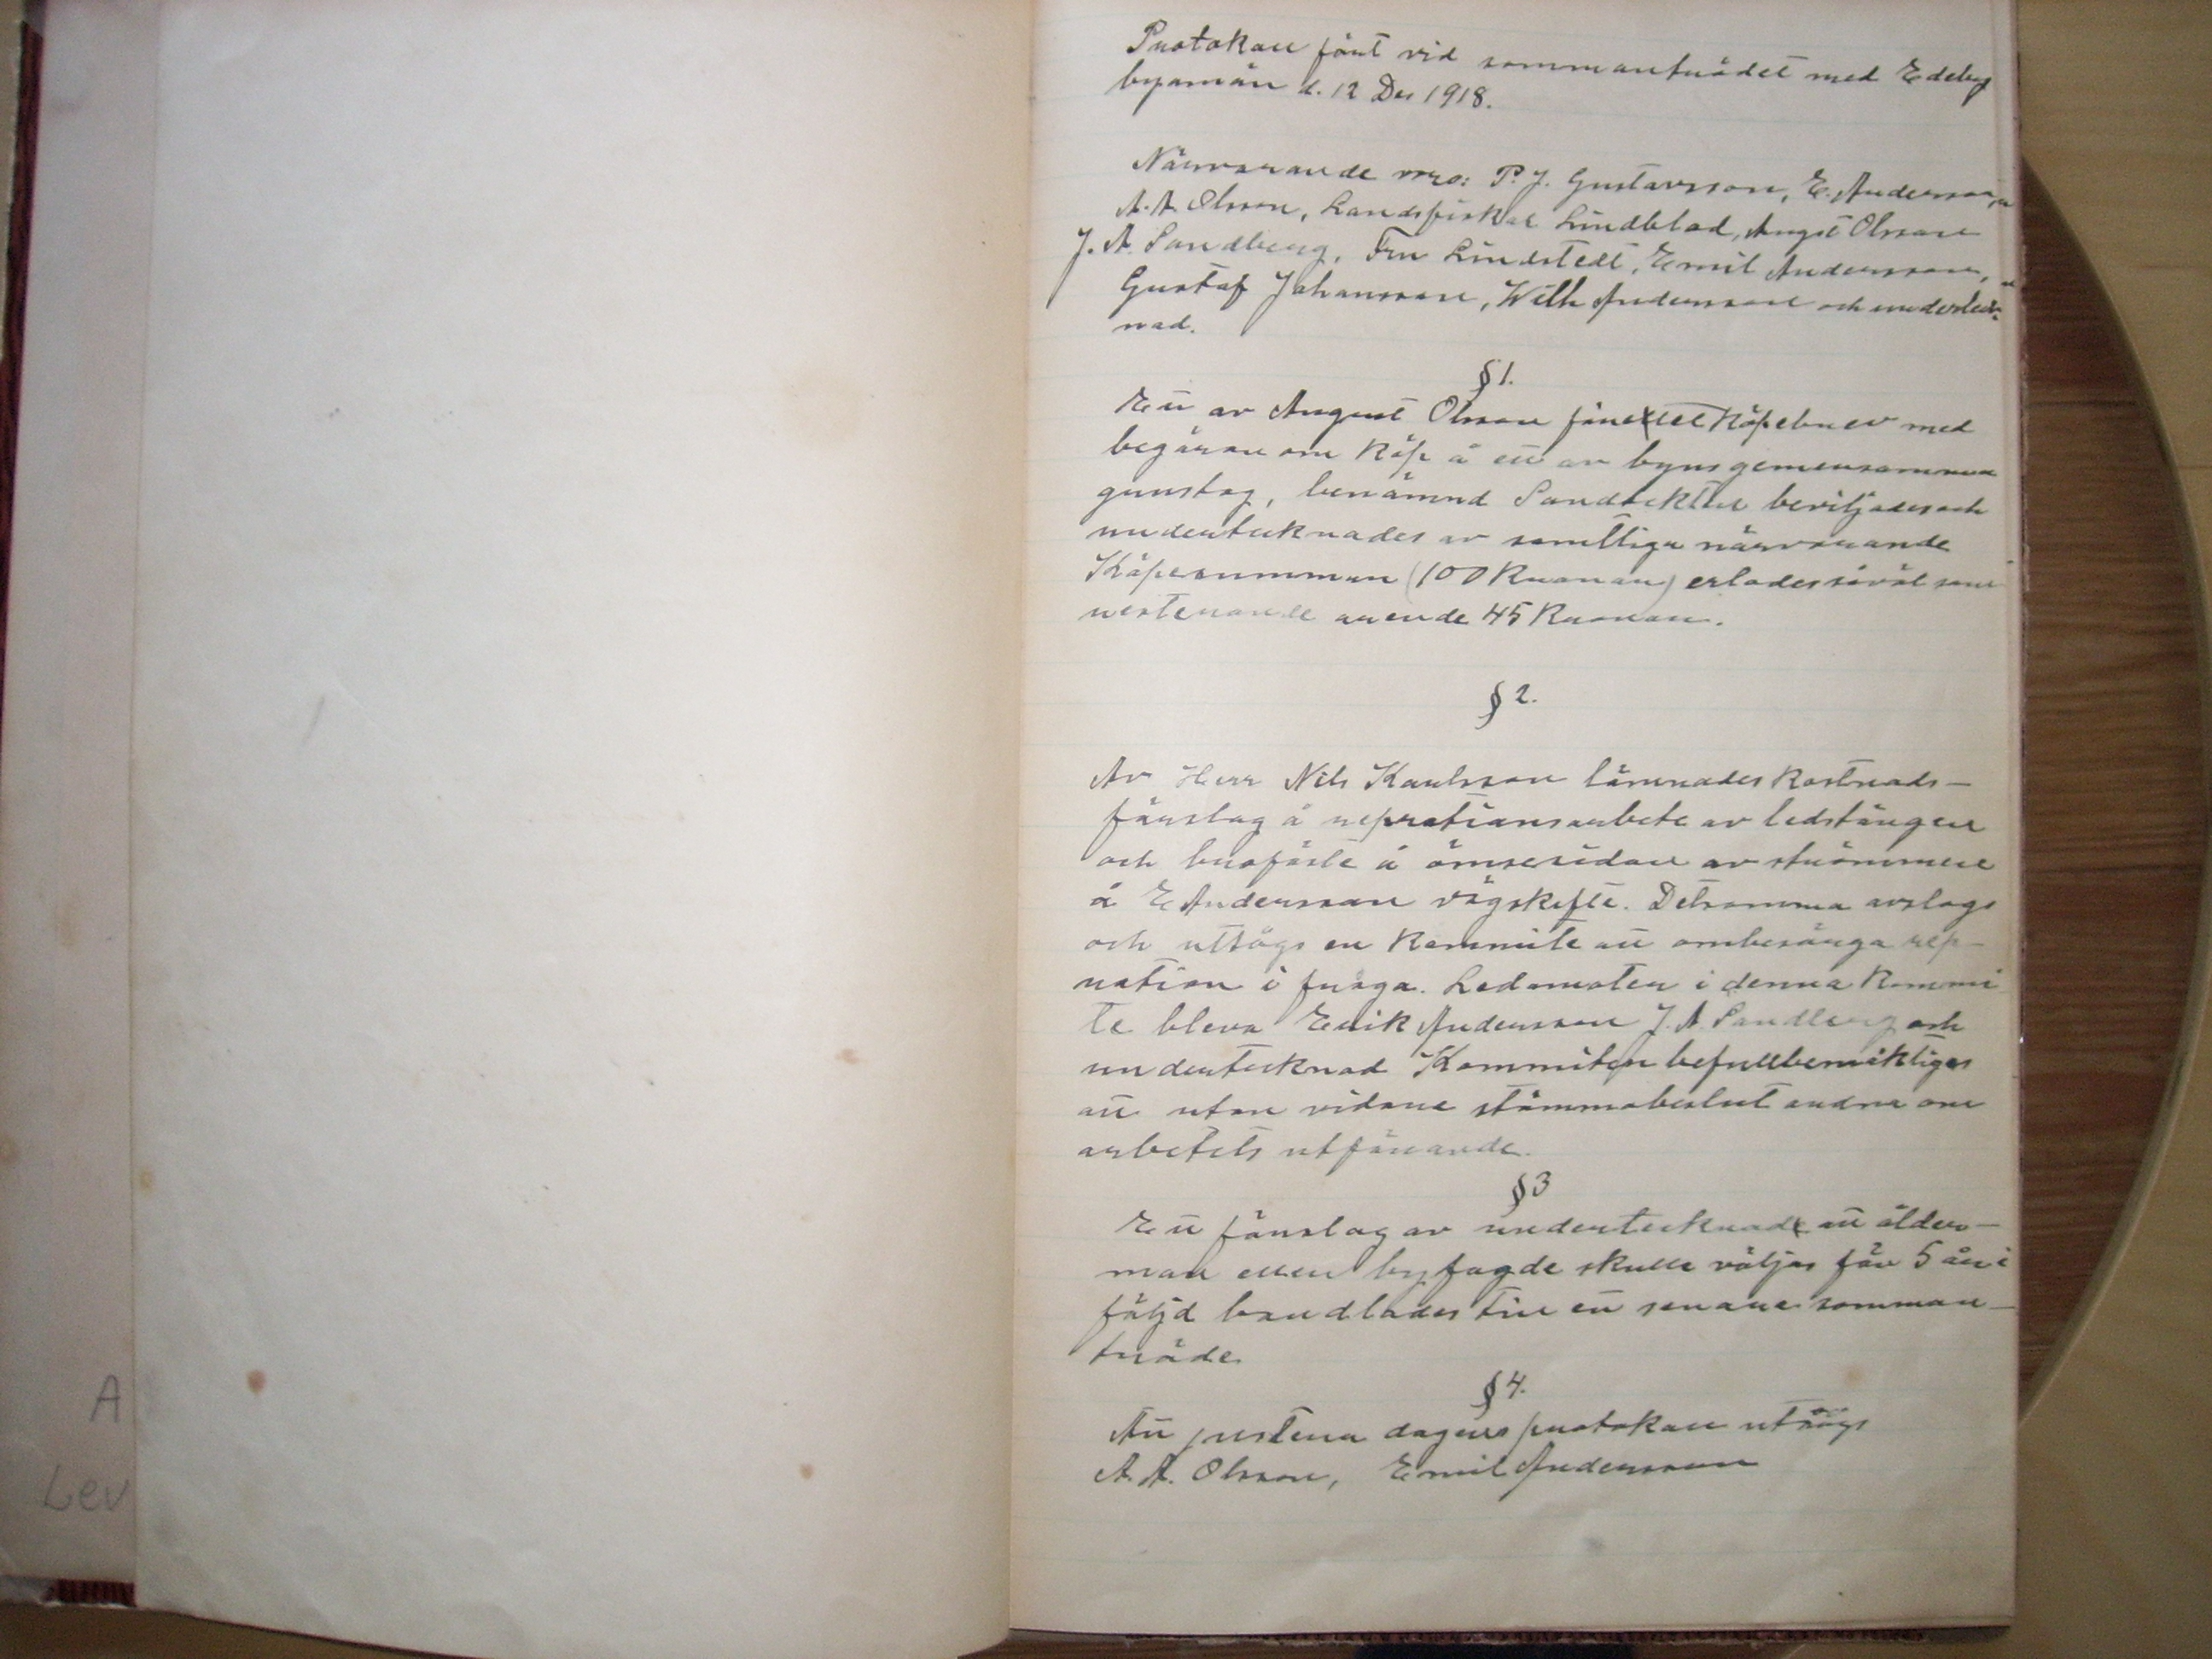 Protokoll fört vid sammanträdet med Edeby
byamän d. 12 Des 1918.
Närvarande voro: P. J. Gustavsson, E. Andersson,
A. A. Olsson, Landsfiskal Lindblad, Augst Olsson
J. A. Sandberg, Fru Lindstedt, Emil Andersson,
Gustaf Johansson, Wilh Andersson och underteck-
nad.
§ 1.
Ett av August Olsson företet köpebrev med
begäran om köp å ett av byns gemensamma
grustag, benämnd beviljades och
undertecknades av samtliga närvarande
Köpesumman (100 Kronor) erlades såväl som
resterande arende 45 Kronor.
§ 2.
Av Herr Nils Karlsson lämnades kostnads-
förslag å reprationsarbete av ledstänger
och brofäste å ömse sidor av strömmen
å E Andersson vägskifte. Detsamma avslogs
och uttogs en Kommite att ombesörga rep-
ration i fråga. Ledamoter i denna Kommi
te bleva Erik Andersson J. A Sandberg och
undertecknad Kommiten befullbemäktigas
att utan vidare stämmobeslut andra om
arbetets utförande.
§ 3
Ett förslag av undertecknad att ålder-
man eller byfogde skulle väljas för 5 år i
följd bordlades till ett senare samman-
träde.
§ 4.
Att justera dagens protokoll utsågs
A. A. Olsson, Emil Andersson
A
Lev